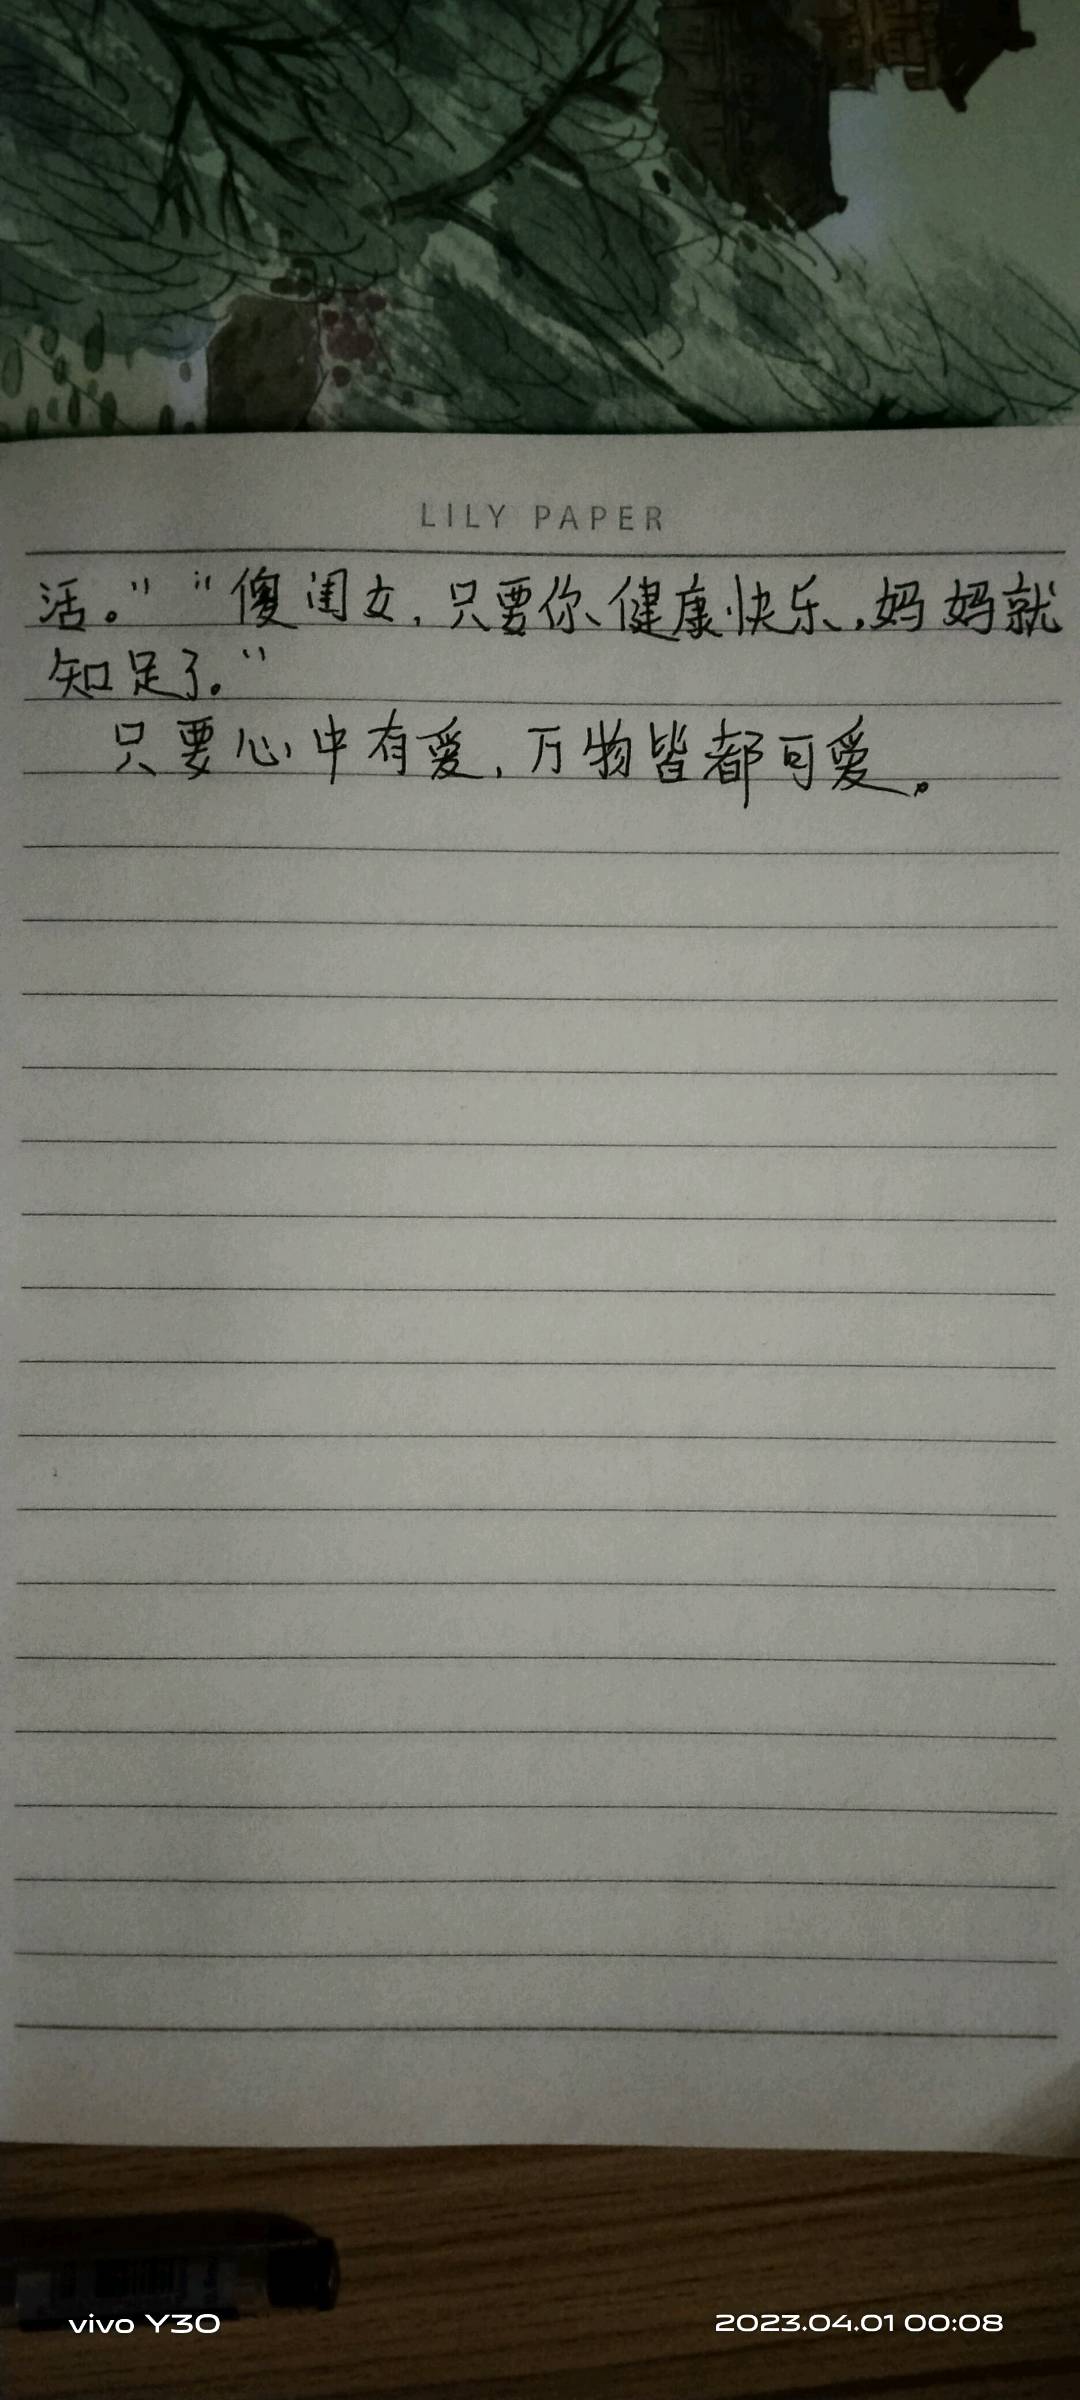 LILY PAPER
活。” “傻闺女,只要你健康快乐,妈妈就
知足了。”
只要心中有爱,万物皆都可爱。
vivo Y30
2023.04.01 00:08